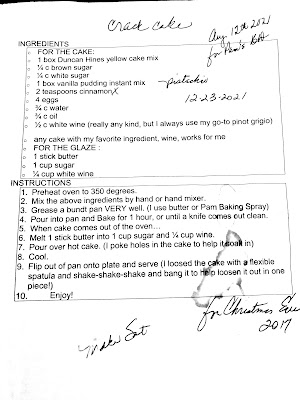 Crack Cake
Aug 12th 2021
for Pam's BD
INGREDIENTS
FOR THE CAKE:
1 box Duncan Hines yellow cake mix
¼ c brown sugar
¼ c white sugar
1 box vanilla pudding instant mix - pistachio
2 teaspoons cinnamon X
4 eggs
12-23-2021
¾ c water
¾ c oil
½ c white wine (really any kind, but I always use my go-to pinot grigio)
any cake with my favorite ingredient, wine, works for me
FOR THE GLAZE :
1 stick butter
1 cup sugar
¼ cup white wine
INSTRUCTIONS
1. Preheat oven to 350 degrees.
2. Mix the above ingredients by hand or hand mixer.
3. Grease a bundt pan VERY well. (I use butter or Pam Baking Spray)
4. Pour into pan and Bake for 1 hour, or until a knife comes out clean.
5. When cake comes out of the oven…
6. Melt 1 stick butter into 1 cup sugar and ¼ cup wine.
7. Pour over hot cake. (I poke holes in the cake to help it soak in)
8. Cool.
9. Flip out of pan onto plate and serve (I loosed the cake with a flexible
spatula and shake-shake-shake and bang it to help loosen it out in one
piece!)
10. Enjoy!
Make Sat
for Christmas Eve
2017